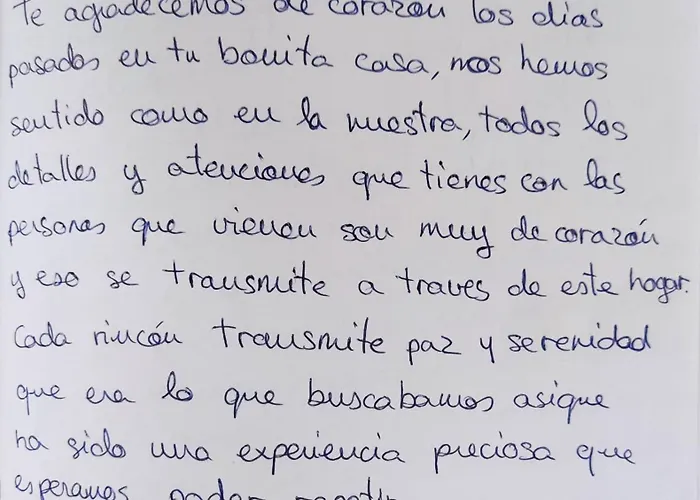 Te agradecemos de corazón los días
pasados en tu bonita casa, nos hemos
sentido como en la nuestra, todos los
detalles y atenciones que tienes con las
personas que vienen son muy de corazón
y eso se transmite a traves de este hogar.
Cada rincón transmite paz y serenidad
que era lo que buscabamos asique
ha sido una experiencia preciosa que
esperamos poder repetir